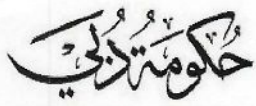 حُكومَةُ دُبَيّ